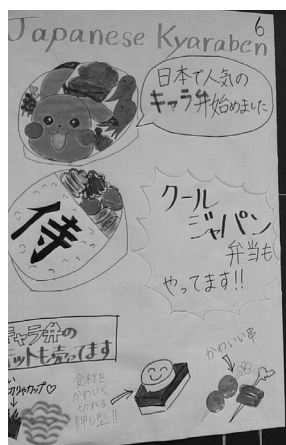 6
Japanese Kyaraben
日本で人気の
キャラ弁始めました
侍
クール
ジャパン
弁当も
やってます!!
キャラ弁の
ットも売ってます
カップ♡
食材を
かわいく
切れる
押し型!!
かわいい串